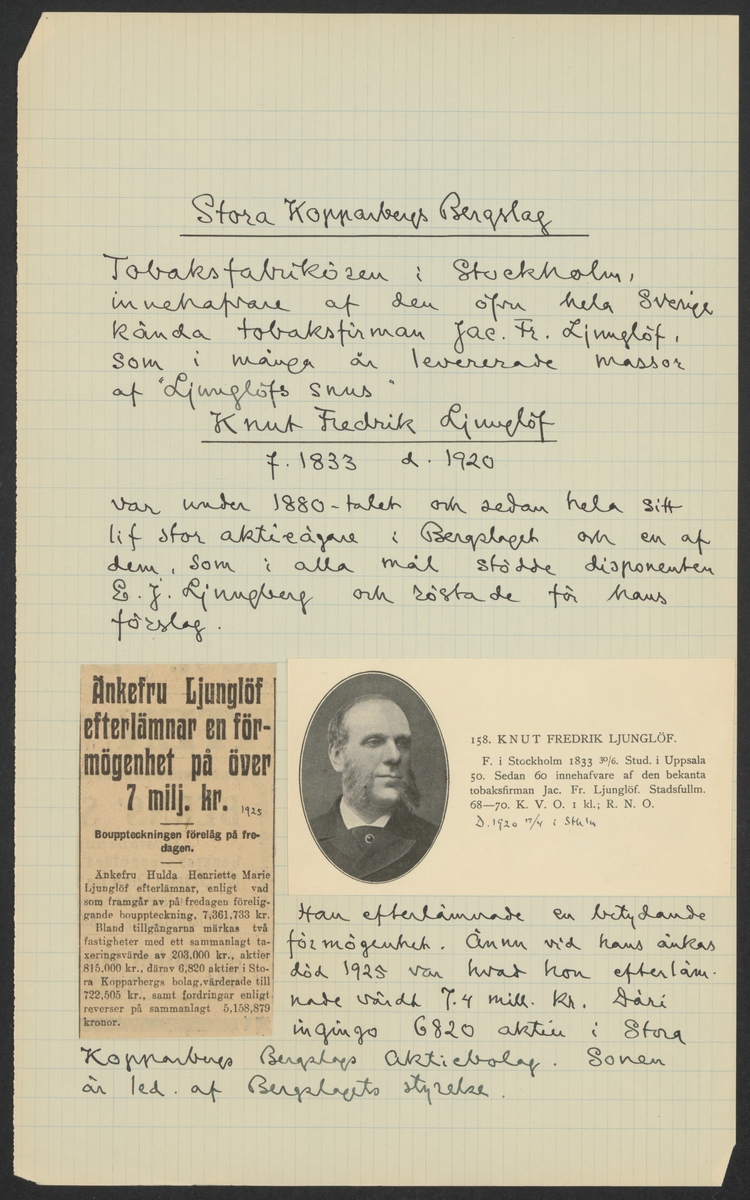 Stora Kopparbergs Bergslag
Tobaksfabrikören i Stockholm,
innehafvare af den öfvr hela Sverige
kända tobaksfirman Jac. Fr. Ljunglöf,
som i många år levererade massor
af "Ljunglöfs snus"
Knut Fredrik Ljunglöf
f. 1833 d. 1920
var under 1880-talet och sedan hela sitt
lif stor aktieägare i Bergslaget och en af
dem, som i alla mål stödde disponenten
E. J. Ljungberg och röstade för hans
förslag.
Änkefru Ljunglöf
efterlämnar en för-
mögenhet på över
7 milj. kr. 1925
Bouppteckningen förelåg på fre-
dagen.
Änkefru Hulda Henriette Marie
Ljunglöf efterlämnar, enligt vad
som framgår av på fredagen förelig-
gande bouppteckning, 7,361,733 kr.
Bland tillgångarna märkas två
fastigheter med ett sammanlagt ta-
xeringsvärde av 203,000 kr., aktier
815,000 kr., därav 6,820 aktier i Sto-
ra Kopparbergs bolag, värderade till
722,505 kr., samt fordringar enligt
reverser på sammanlagt 5,158,879
kronor.
158. KNUT FREDRIK LJUNGLÖF.
F. i Stockholm 1833 30/6. Stud. i Uppsala
50. Sedan 60 innehafvare af den bekanta
tobaksfirman Jac. Fr. Ljunglöf. Stadsfullm.
68—70. K. V. O. 1 kl.; R. N. O.
D. 1920 /4 i Sthlm
Han efterlämnade en betydande
förmögenhet. Ännu vid hans änkas
död 1925 var hvad hon efterläm-
nade värdt 7.4 mill. kr. Däri
ingingo 6820 aktier i Stora
Kopparbergs Bergslags Aktiebolag. Sonen
är led. af Bergslagets styrelse.